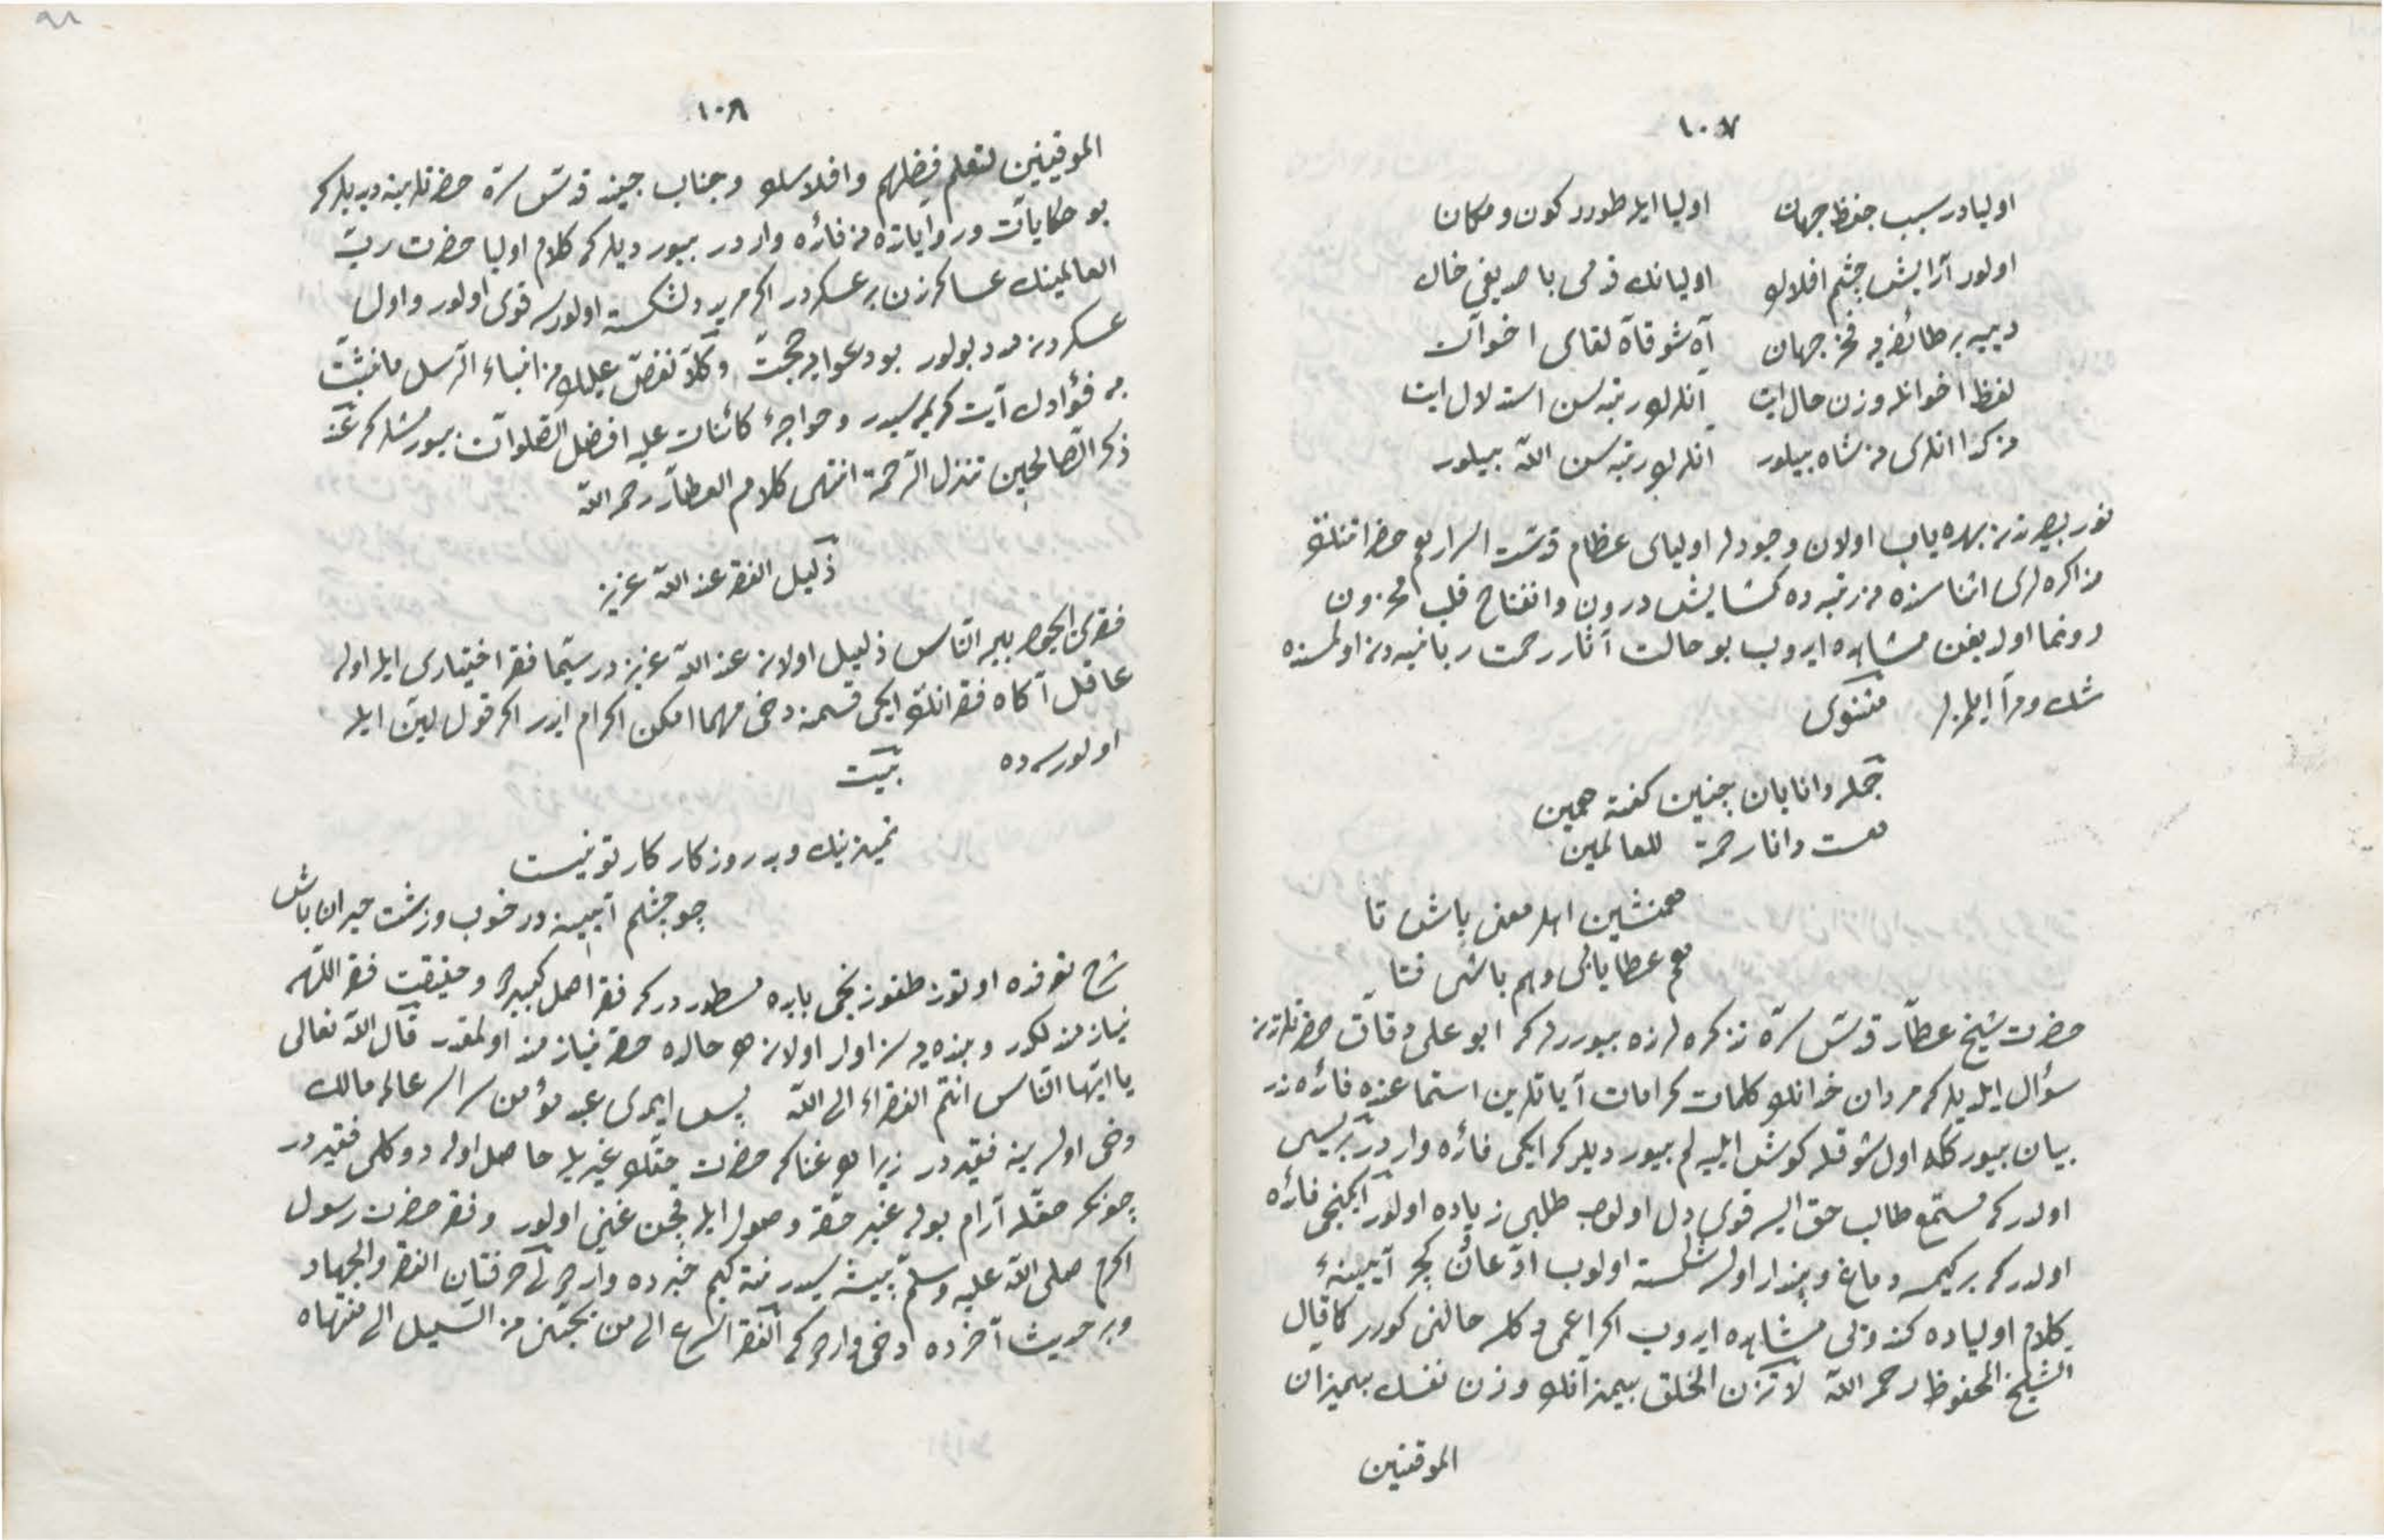 ١٠٧
اوليادر سبب حفظ جهان اوليا ايله طورر كون و مكان
اولور آرايش چشم افلاك اوليانك قدمى باصديغى خاك
ديييه بر طائفه‌يه فخر جهان آه شوقاة لقاى اخوان
لفظ اخوانله وزن حال ايت آنلرك رتبه‌سن استدلال ايت
انلرى شاه بيلور آنلرك رتبه‌سن الله بيلور
نور بصيرتدن بهره‌ياب اولان وجودلر اولياى عظام قدست اسرارهم حضراتنك
مذاكره‌لرى اثناسنده نه رتبه‌ده كشايش درون و انفتاح قلب محزون
رونما اولديغن مشاهده ايدوب بو حالت آثار رحمت ربانيه‌دن اولمسنده
شك و مرا ايلمزلر مثنوى
جمله دانايان چنين گفته همين
هست دانا رحمة للعالمين
همنشين اهل معنى باش تا
هم عطا يابى و هم باشى فتا
حضرت شيخ عطار قدس سره تذكره‌لرنده بيوررلر كه ابو على دقاق حضرتلرندن
سؤال ايلديلر كه مردان خدانك كلمات كرامات آياتلرين استماعنده فائده ندر
بيان بيورك اول شوقله گوش ايليه‌لم بيورديلر كه ايكى فائده واردر بريسى
اولدر كه مستمع طالب حق ايسه قوى دل اولوب طلبى زياده اولور ايكنجى فائده
اولدر كه بر كيمسه دماغ و پندار اولسه شكسته اولوب ادعادن كچر آيينهٔ
كلام اولياده كندوىى مشاهده ايدوب اكر اعمى دكلسه حالنى كورر كما قال
الشيخ المحفوظ رحمه الله لا تزن الخلق بميزانك وزن نفسك بميزان
الموقنين
١٠٨
الموقنين لتعلم فضلهم وافلاسك و جناب جنيد قدس سره حضرتلرينه ديديلر كه
بو حكايات و رواياتده نه فائده واردر بيورديلر كه كلام اوليا حضرت رب
العالمينك عساكرندن بر عسكردر اكر مريد دلشكسته اولورسه قوى اولور و اول
عسكردن مدد بولور بو دعوايه حجت وكلا نقص عليك من انباء الرسل ما نثبت
به فؤادك آيت كريمه‌سيدر و خواجهٔ كائنات عليه افضل الصلوات بيورمشلر كه عند
ذكر الصالحين تنزل الرحمة انتهى كلام العطار رحمه الله
ذليل الفقر عند الله عزيز
فقرى بين الناس ذليل اولان عند الله عزيزدر سيما فقر اختيارى ايله اوله
عاقل آگاه فقرانك ايكى قسمنه دخى مهما امكن اكرام ايدر اكر قول لين ايله
اولورسه ده بيت
تميز نيك و بد روزگار كار تو نيست
چو چشم آيينه در خوب و زشت حيران باش
شرح تعرفده اوتوز طقوزنجى بابده مسطوردر كه فقر اصل كبيردر و حقيقت فقر اللهه
نيازمندلكدر و بنده‌يه سزاوار اولان هر حالده حقه نيازمند اولمقدر قال الله تعالى
يا ايها الناس انتم الفقراء الى الله پس ايمدى عبد مؤمن سراسر عالمه مالك
دخى اولسه ينه فقيردر زيرا هر غنا كه حضرت حقك غيريله حاصل اوله دوكلى فقيردر
چونكه حقله آرام بوله غير حقه وصول ايله نيجون غنى اولور و فقر حضرت رسول
اكرم صلى الله عليه وسلم پيشه‌سيدر نته كيم خبرده واردر لى حرفتان الفقر والجهاد
وبر حديث آخرده دخى واردر كه الفقر اسرع الى من يحبنى من السيل الى منتهاه